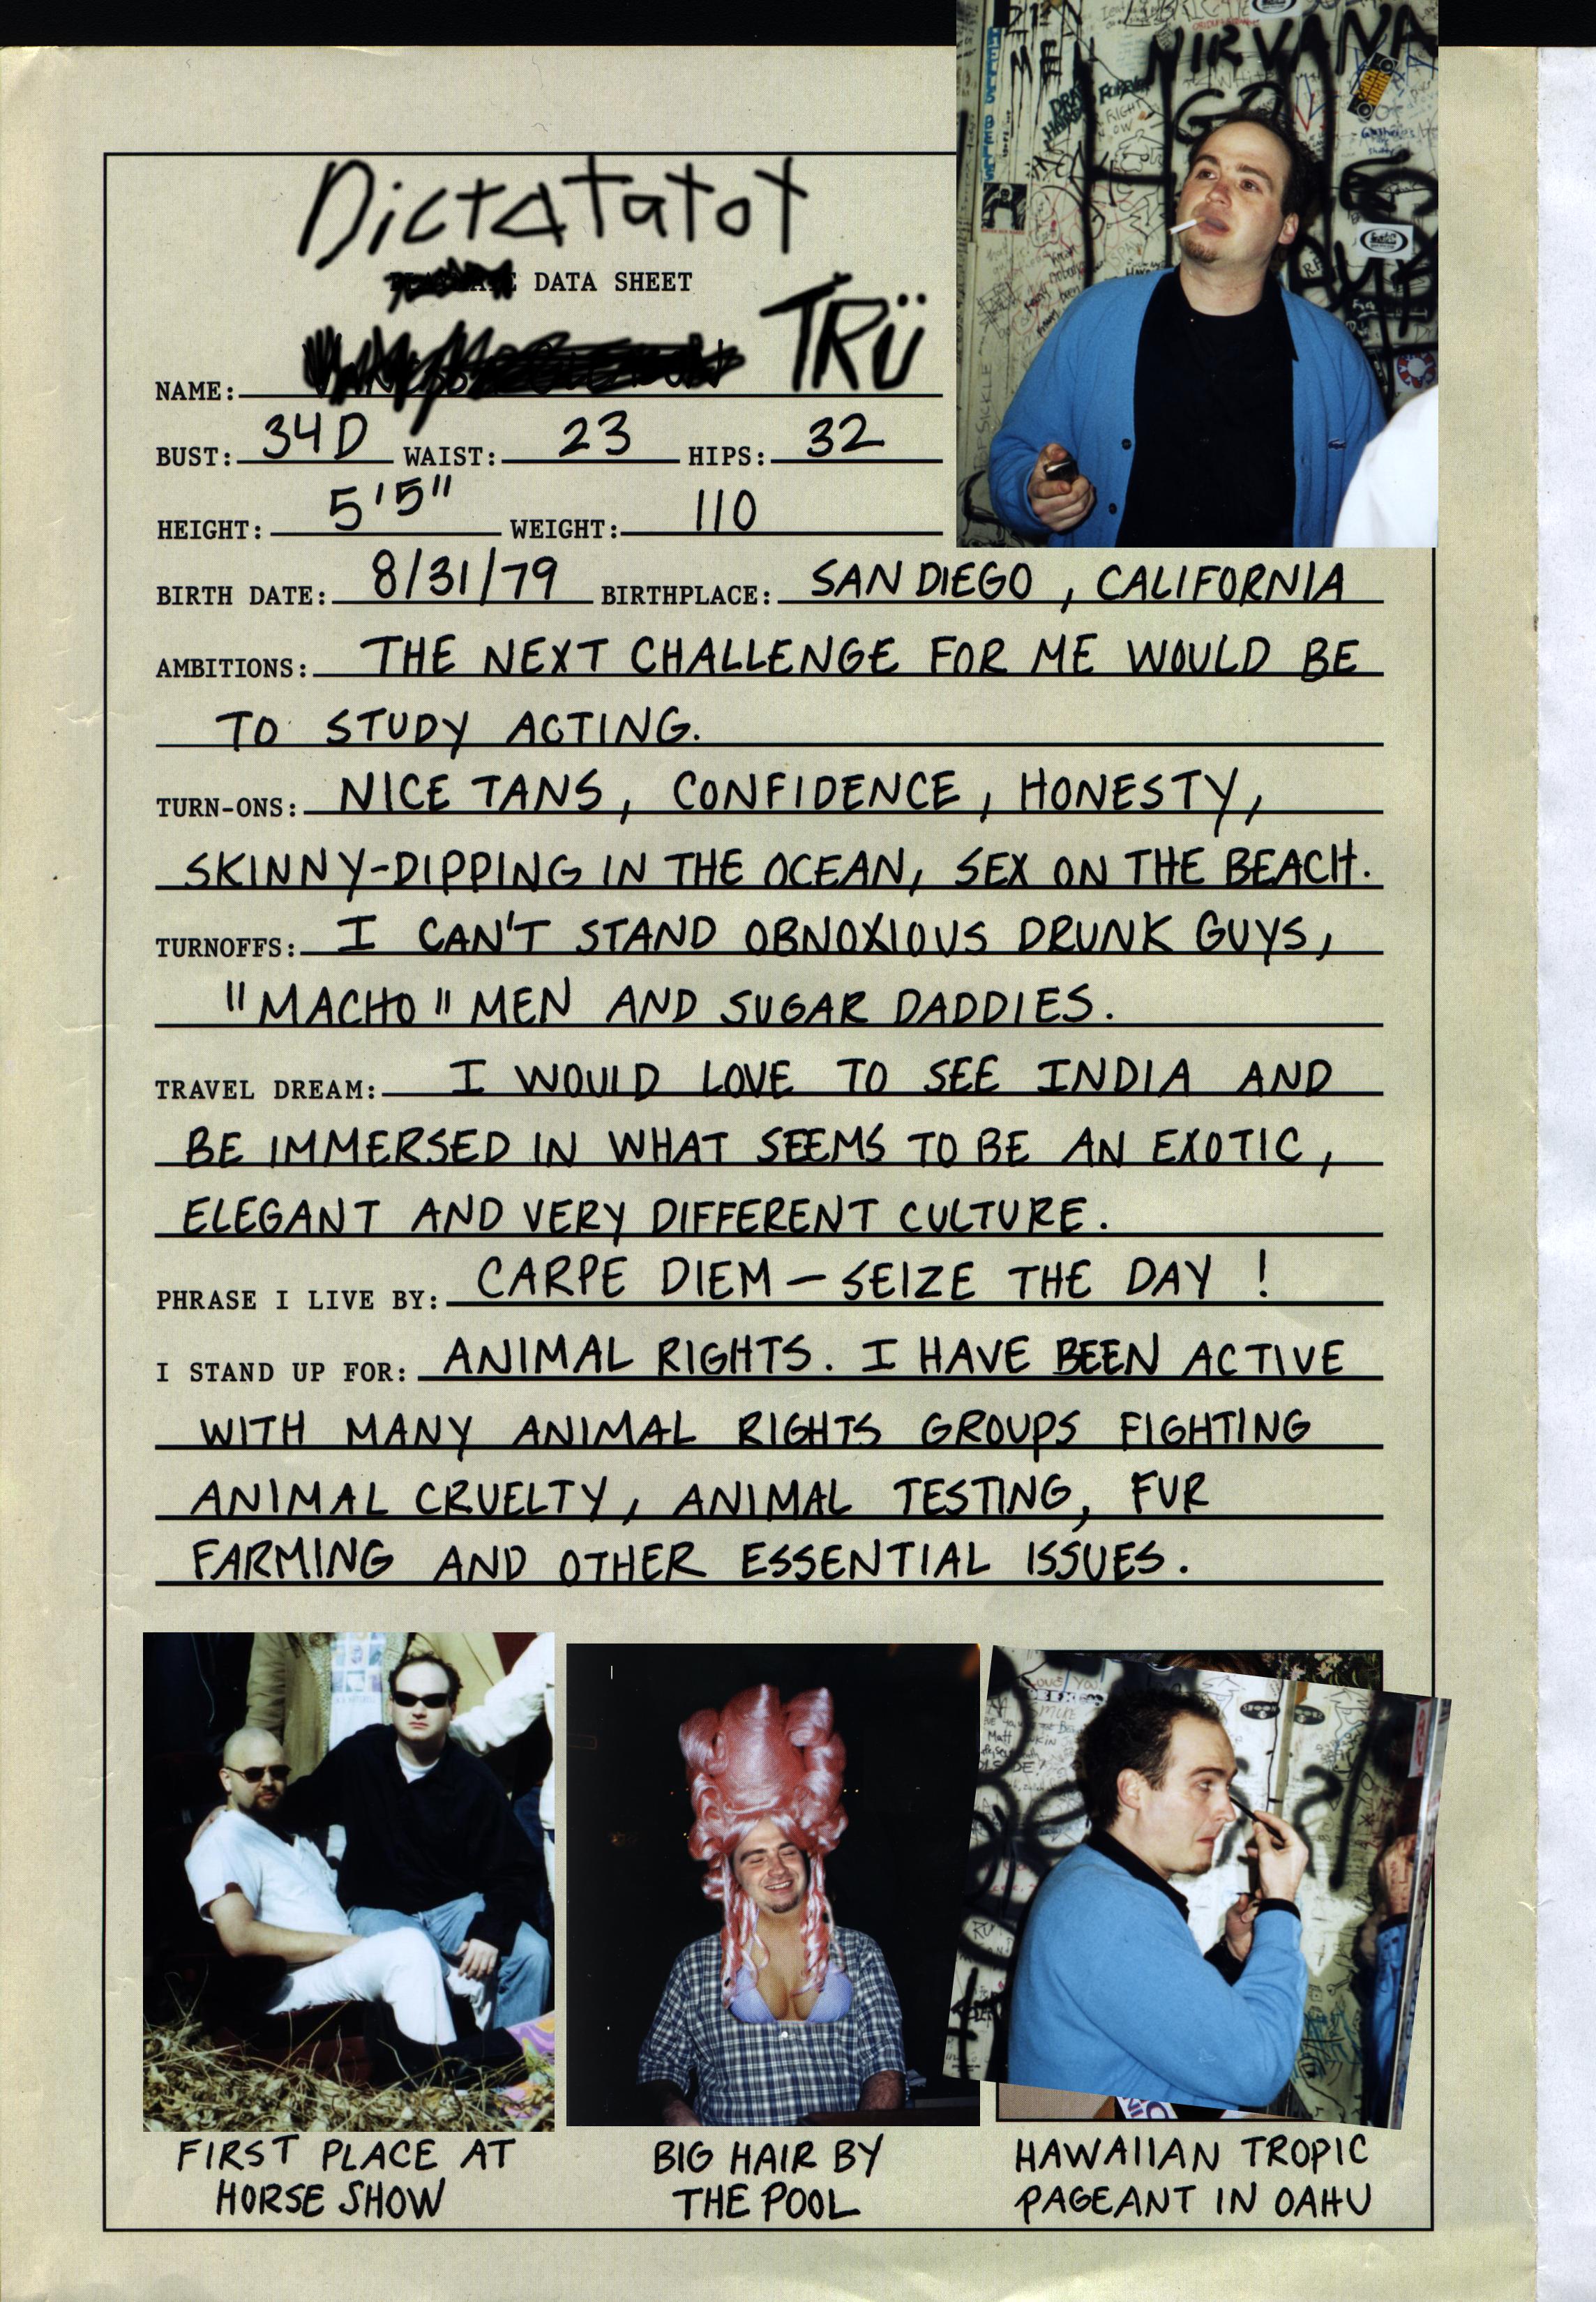 NIRVANA
Dictatatot
DATA SHEET
NAME: TRÜ
BUST: 34D WAIST: 23 HIPS: 32
HEIGHT: 5'5" WEIGHT: 110
BIRTH DATE: 8/31/79 BIRTHPLACE: SAN DIEGO, CALIFORNIA
AMBITIONS: THE NEXT CHALLENGE FOR ME WOULD BE
TO STUDY ACTING.
TURN-ONS: NICE TANS, CONFIDENCE, HONESTY,
SKINNY-DIPPING IN THE OCEAN, SEX ON THE BEACH.
TURNOFFS: I CAN'T STAND OBNOXIOUS DRUNK GUYS,
"MACHO" MEN AND SUGAR DADDIES.
TRAVEL DREAM: I WOULD LOVE TO SEE INDIA AND
BE IMMERSED IN WHAT SEEMS TO BE AN EXOTIC,
ELEGANT AND VERY DIFFERENT CULTURE.
PHRASE I LIVE BY: CARPE DIEM — SEIZE THE DAY!
I STAND UP FOR: ANIMAL RIGHTS. I HAVE BEEN ACTIVE
WITH MANY ANIMAL RIGHTS GROUPS FIGHTING
ANIMAL CRUELTY, ANIMAL TESTING, FUR
FARMING AND OTHER ESSENTIAL ISSUES.
FIRST PLACE AT
HORSE SHOW
BIG HAIR BY
THE POOL
HAWAIIAN TROPIC
PAGEANT IN OAHU